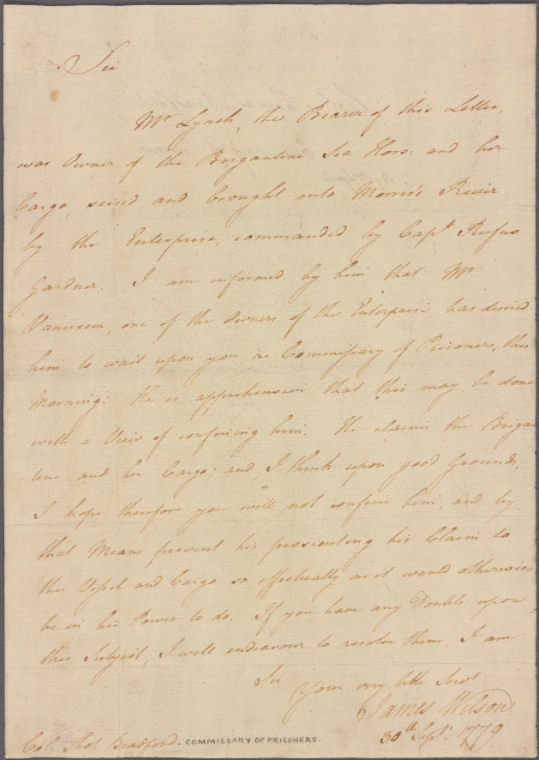 Sir
Mr Lynch, the Bearer of this Letter,
was Owner of the Brigantine Sea Horse and her
Cargo, seized and brought into Morris's River
by the Enterprise, commanded by Capt Rufus
Gardner. I am informed by him that Mr
Vanuxem, one of the Owners of the Enterprise, has desired
him to wait upon you, as Commissary of Prisoners, this
Morning: He is apprehensive that this may be done
with a View of confining him: He claims the Brigan
tine and her Cargo; and, I think upon good Grounds.
I hope therefore you will not confine him, and by
that Means prevent his prosecuting his Claim to
the Vessel and Cargo so effectually as it would otherwise
be in his Power to do. If you have any Doubts upon
this Subject, I will endeavour to resolve them. I am
Sir
Your very hble Servt
James Wilson
30th Septr 1779
Col. Thos. Bradford. COMMISSARY OF PRISONERS.